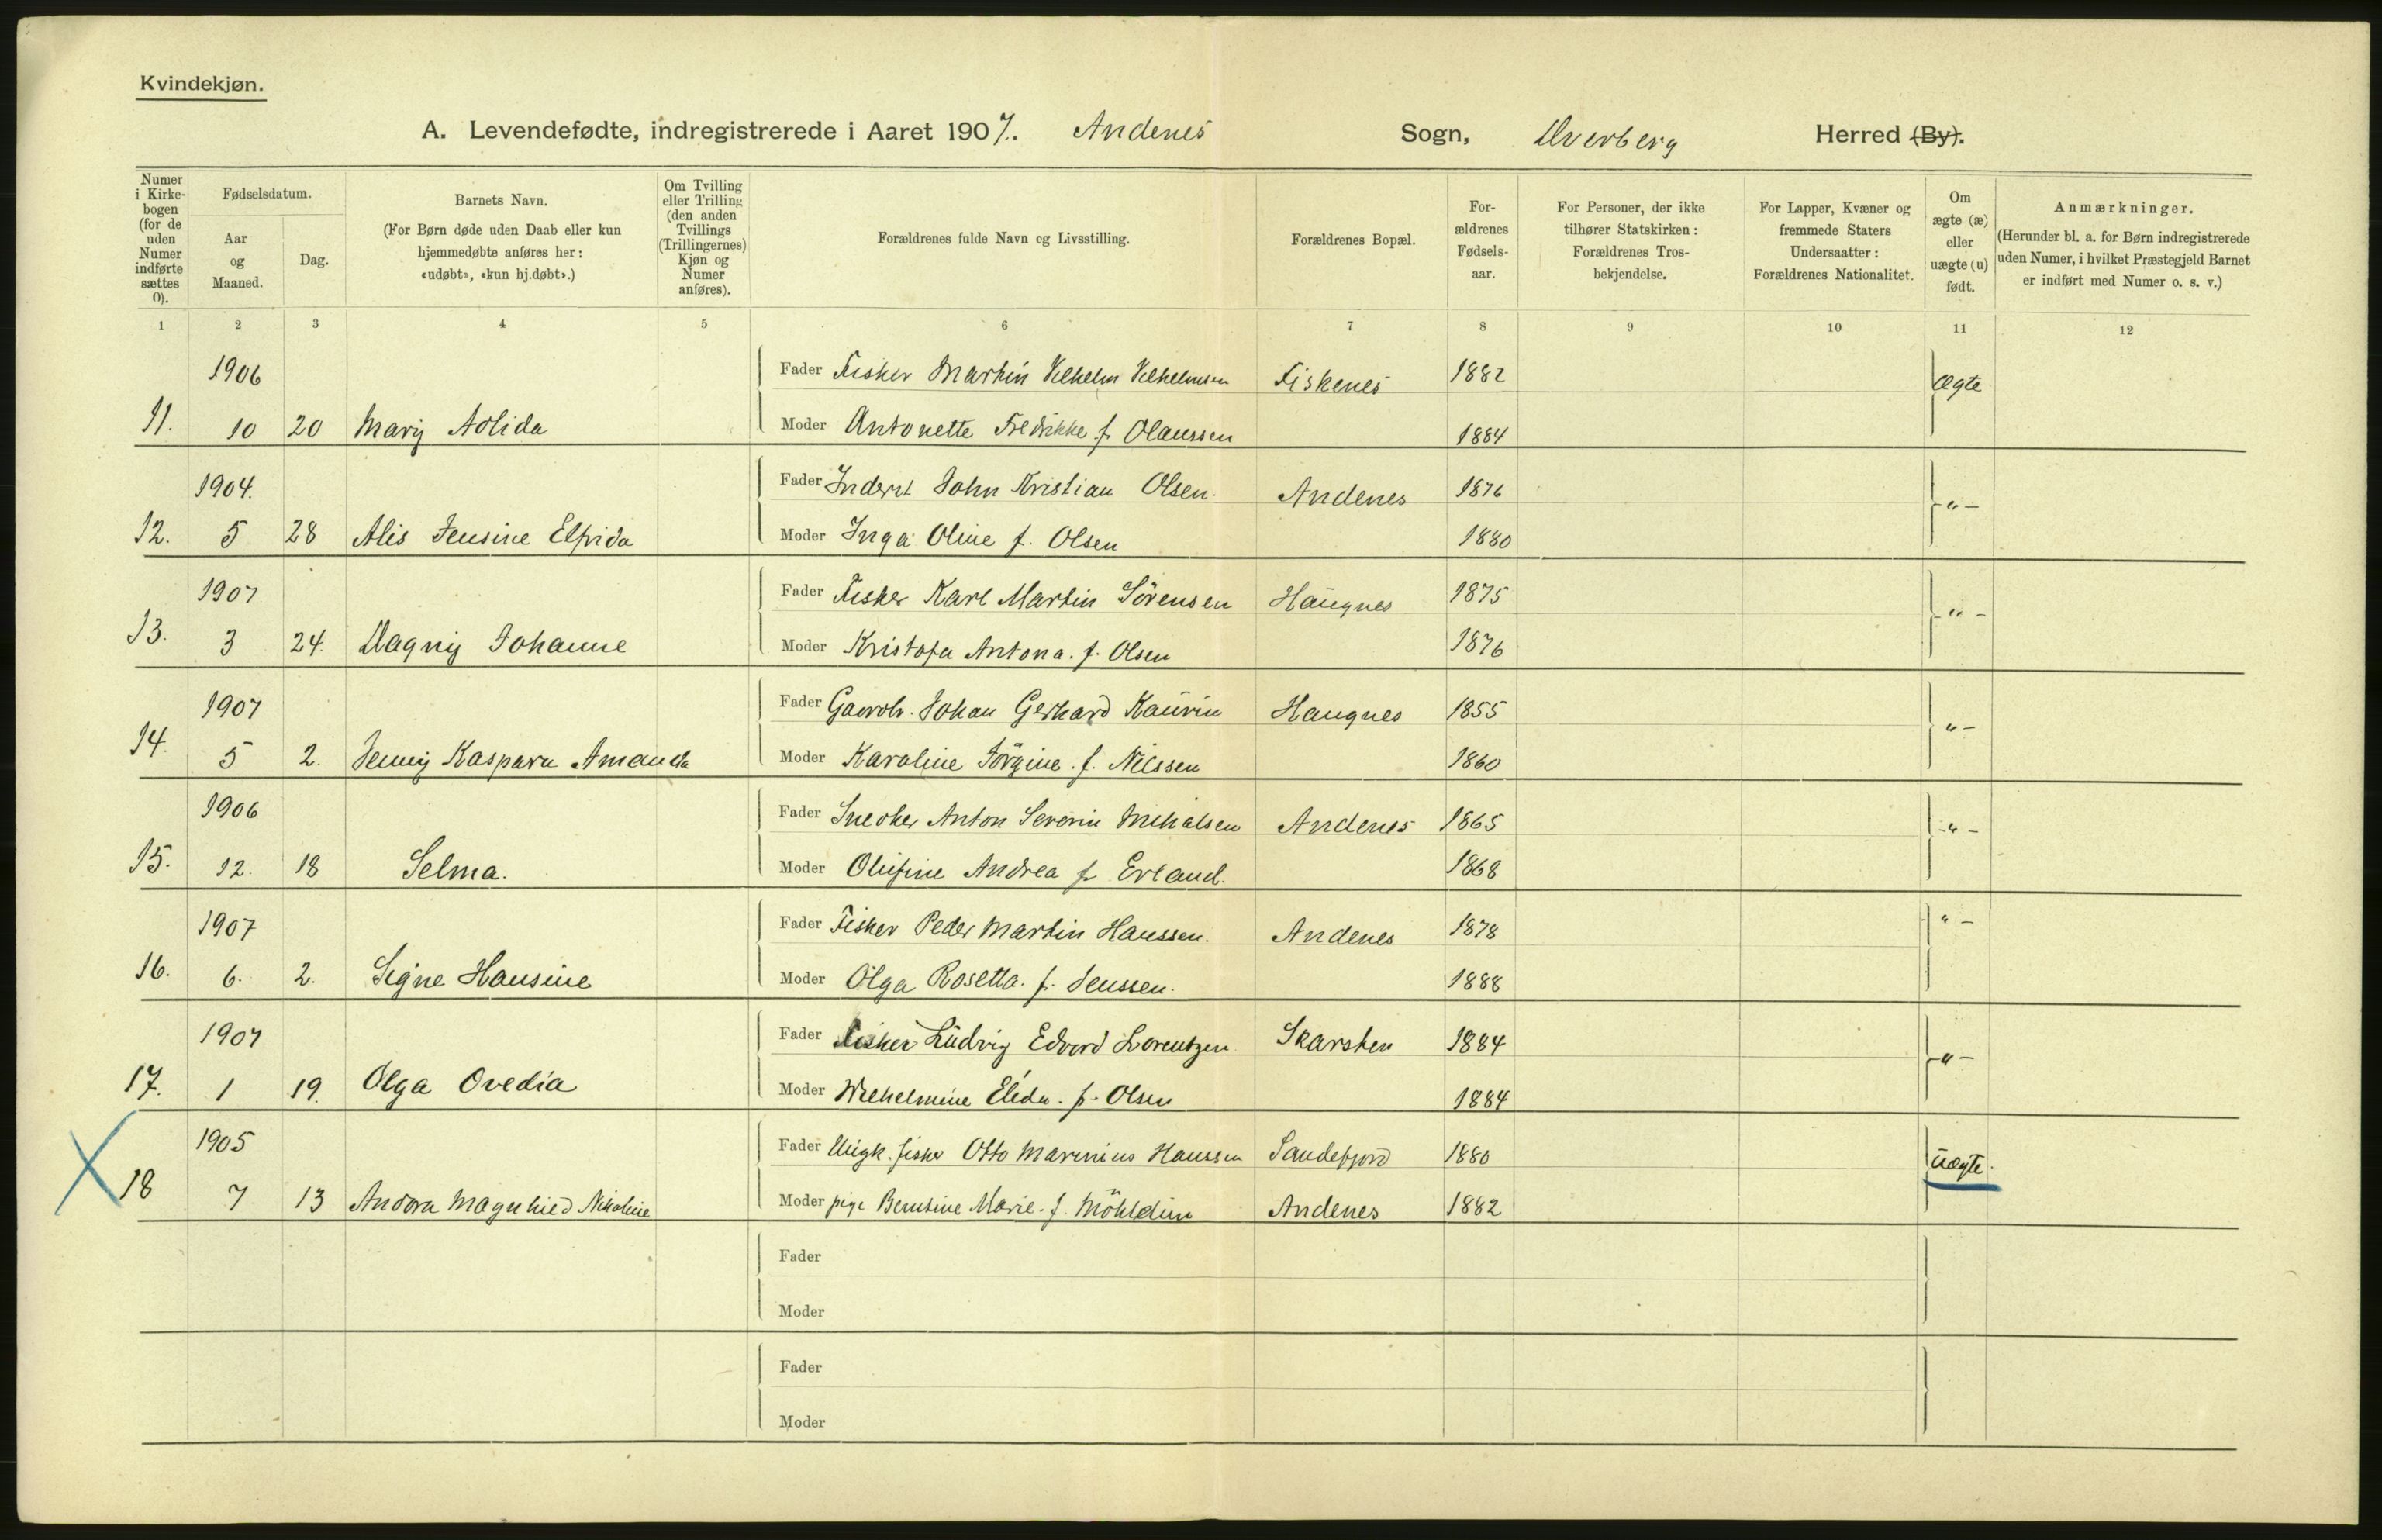 Kvindekjøn.
A. Levendefødte, indregistrerede i Aaret 1907. Andenes Sogn, Dverberg Herred (By).
Numer i Kirkebogen (for de uden Numer indførte sættes 0).
Fødselsdatum.
Aar og Maaned.
Dag.
Barnets Navn.
(For Børn døde uden Daab eller kun hjemmedøbte anføres her: «udøbt», «kun hj.døbt».)
Om Tvilling eller Trilling (den anden Tvillings (Trillingernes) Kjøn og Numer anføres).
Forældrenes fulde Navn og Livsstilling.
Forældrenes Bopæl.
Forældrenes Fødselsaar.
For Personer, der ikke tilhører Statskirken: Forældrenes Trosbekjendelse.
For Lapper, Kvæner og fremmede Staters Undersaatter: Forældrenes Nationalitet.
Om ægte (æ) eller uægte (u) født.
Anmærkninger.
(Herunder bl. a. for Børn indregistrerede uden Numer, i hvilket Præstegjeld Barnet er indført med Numer o. s. v.)
1 2 3 4 5 6 7 8 9 10 11 12
1906 Fader Fisker Martin Vilhelm Vilhelmsen Fiskenes 1882 Ægte
11. 10 20 Mary Adlida Moder Antonette Fredrikke f. Olaussen 1884
1904. Fader Inderst John Kristian Olsen. Andenes 1876 -"-
12. 5 28 Alis Jensine Elfrida Moder Inga Oline f. Olsen 1880
1907 Fader Fisker Karl Martin Sörensen Haugnes 1875 -"-
13. 3 24. Dagny Johanne Moder Kristofa Antona. f. Olsen 1876
1907 Fader Gaardb. Johan Gerhard Kaurin Haugnes 1855 "-
14. 5 2. Jenny Kaspara Amanda Moder Karoline Jörgine. f. Nilssen 1860
1906 Fader Snedker Anton Severin Mikalsen Andenes 1865 -"-
15. 12. 18 Selma. Moder Olufine Andrea f. Erland. 1868
1907 Fader Fisker Peder Martin Hanssen. Andenes 1878 "-
16. 6. 2. Signe Hansine Moder Olga Rosetta. f. Jenssen. 1888
1907 Fader Fisker Ludvig Edvard Lorentzen Skarsten 1884 -"-
17. 1 19. Olga Ovedia Moder Wilhelmine Elida. f. Olsen 1884
1905 Fader Ungk. fisker Otto Marinius Hanssen Sandefjord 1880 uægte.
18 7 13 Andora Magnhild Nikoline Moder pige Berntine Marie. f. Möhldun Andenes 1882
Fader
Moder
Fader
Moder